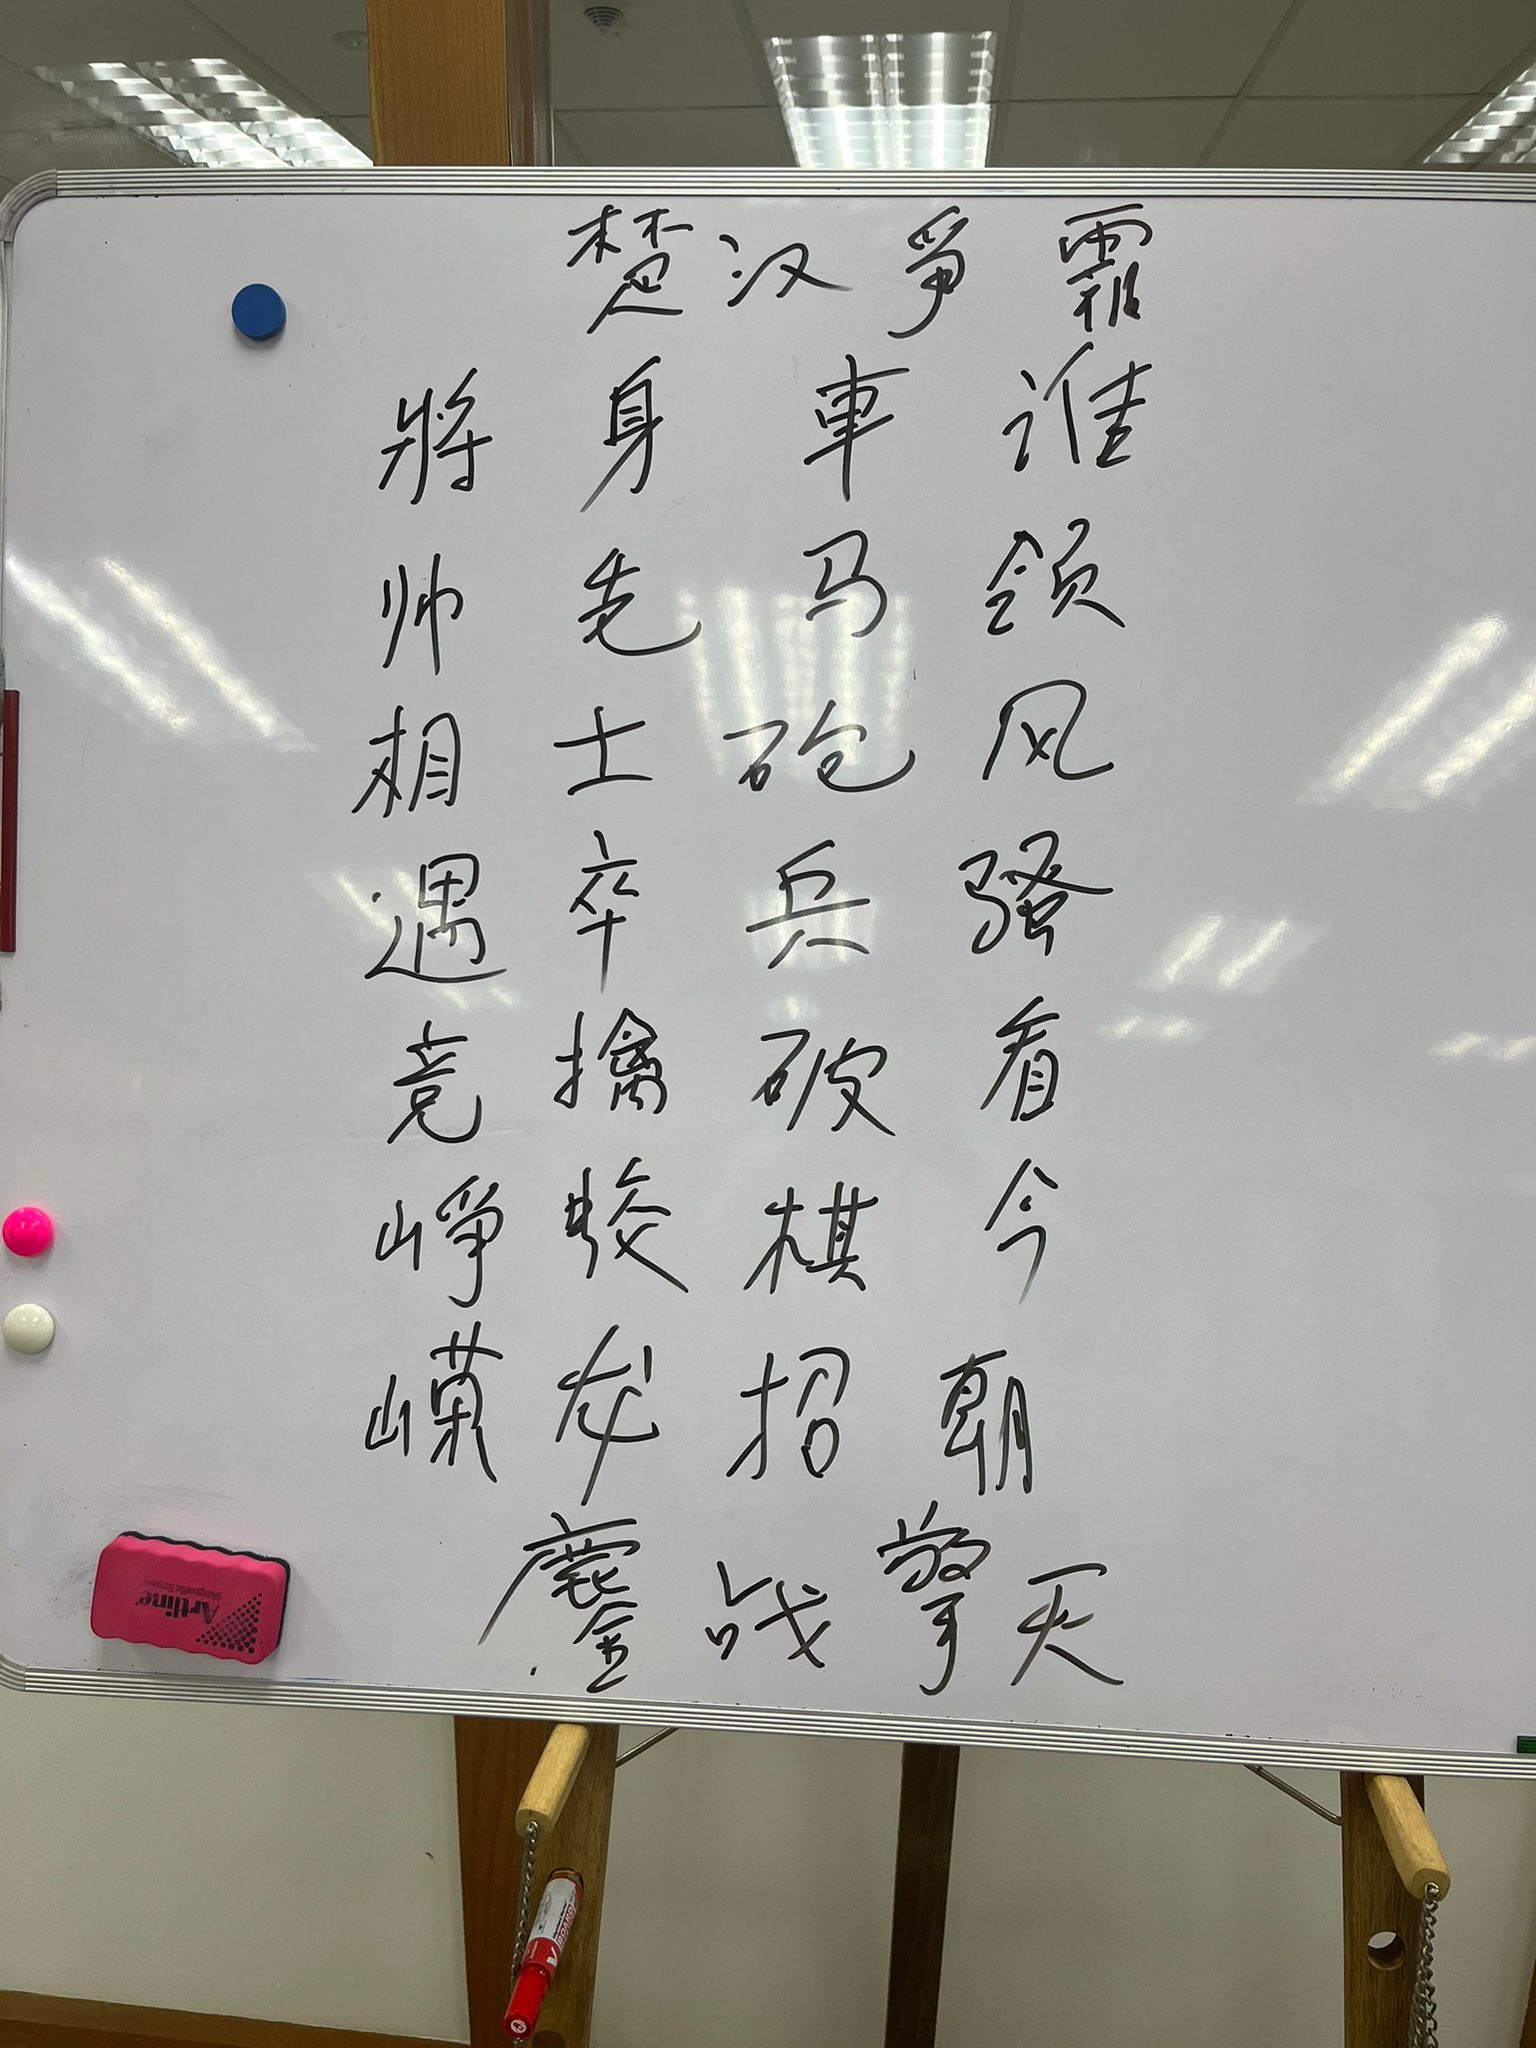 楚汉爭霸
將帅相遇竞崢嵘
身先士卒擒蛟龙
車马砲兵破棋招
谁领风骚看今朝
鏖战擎天
Artline